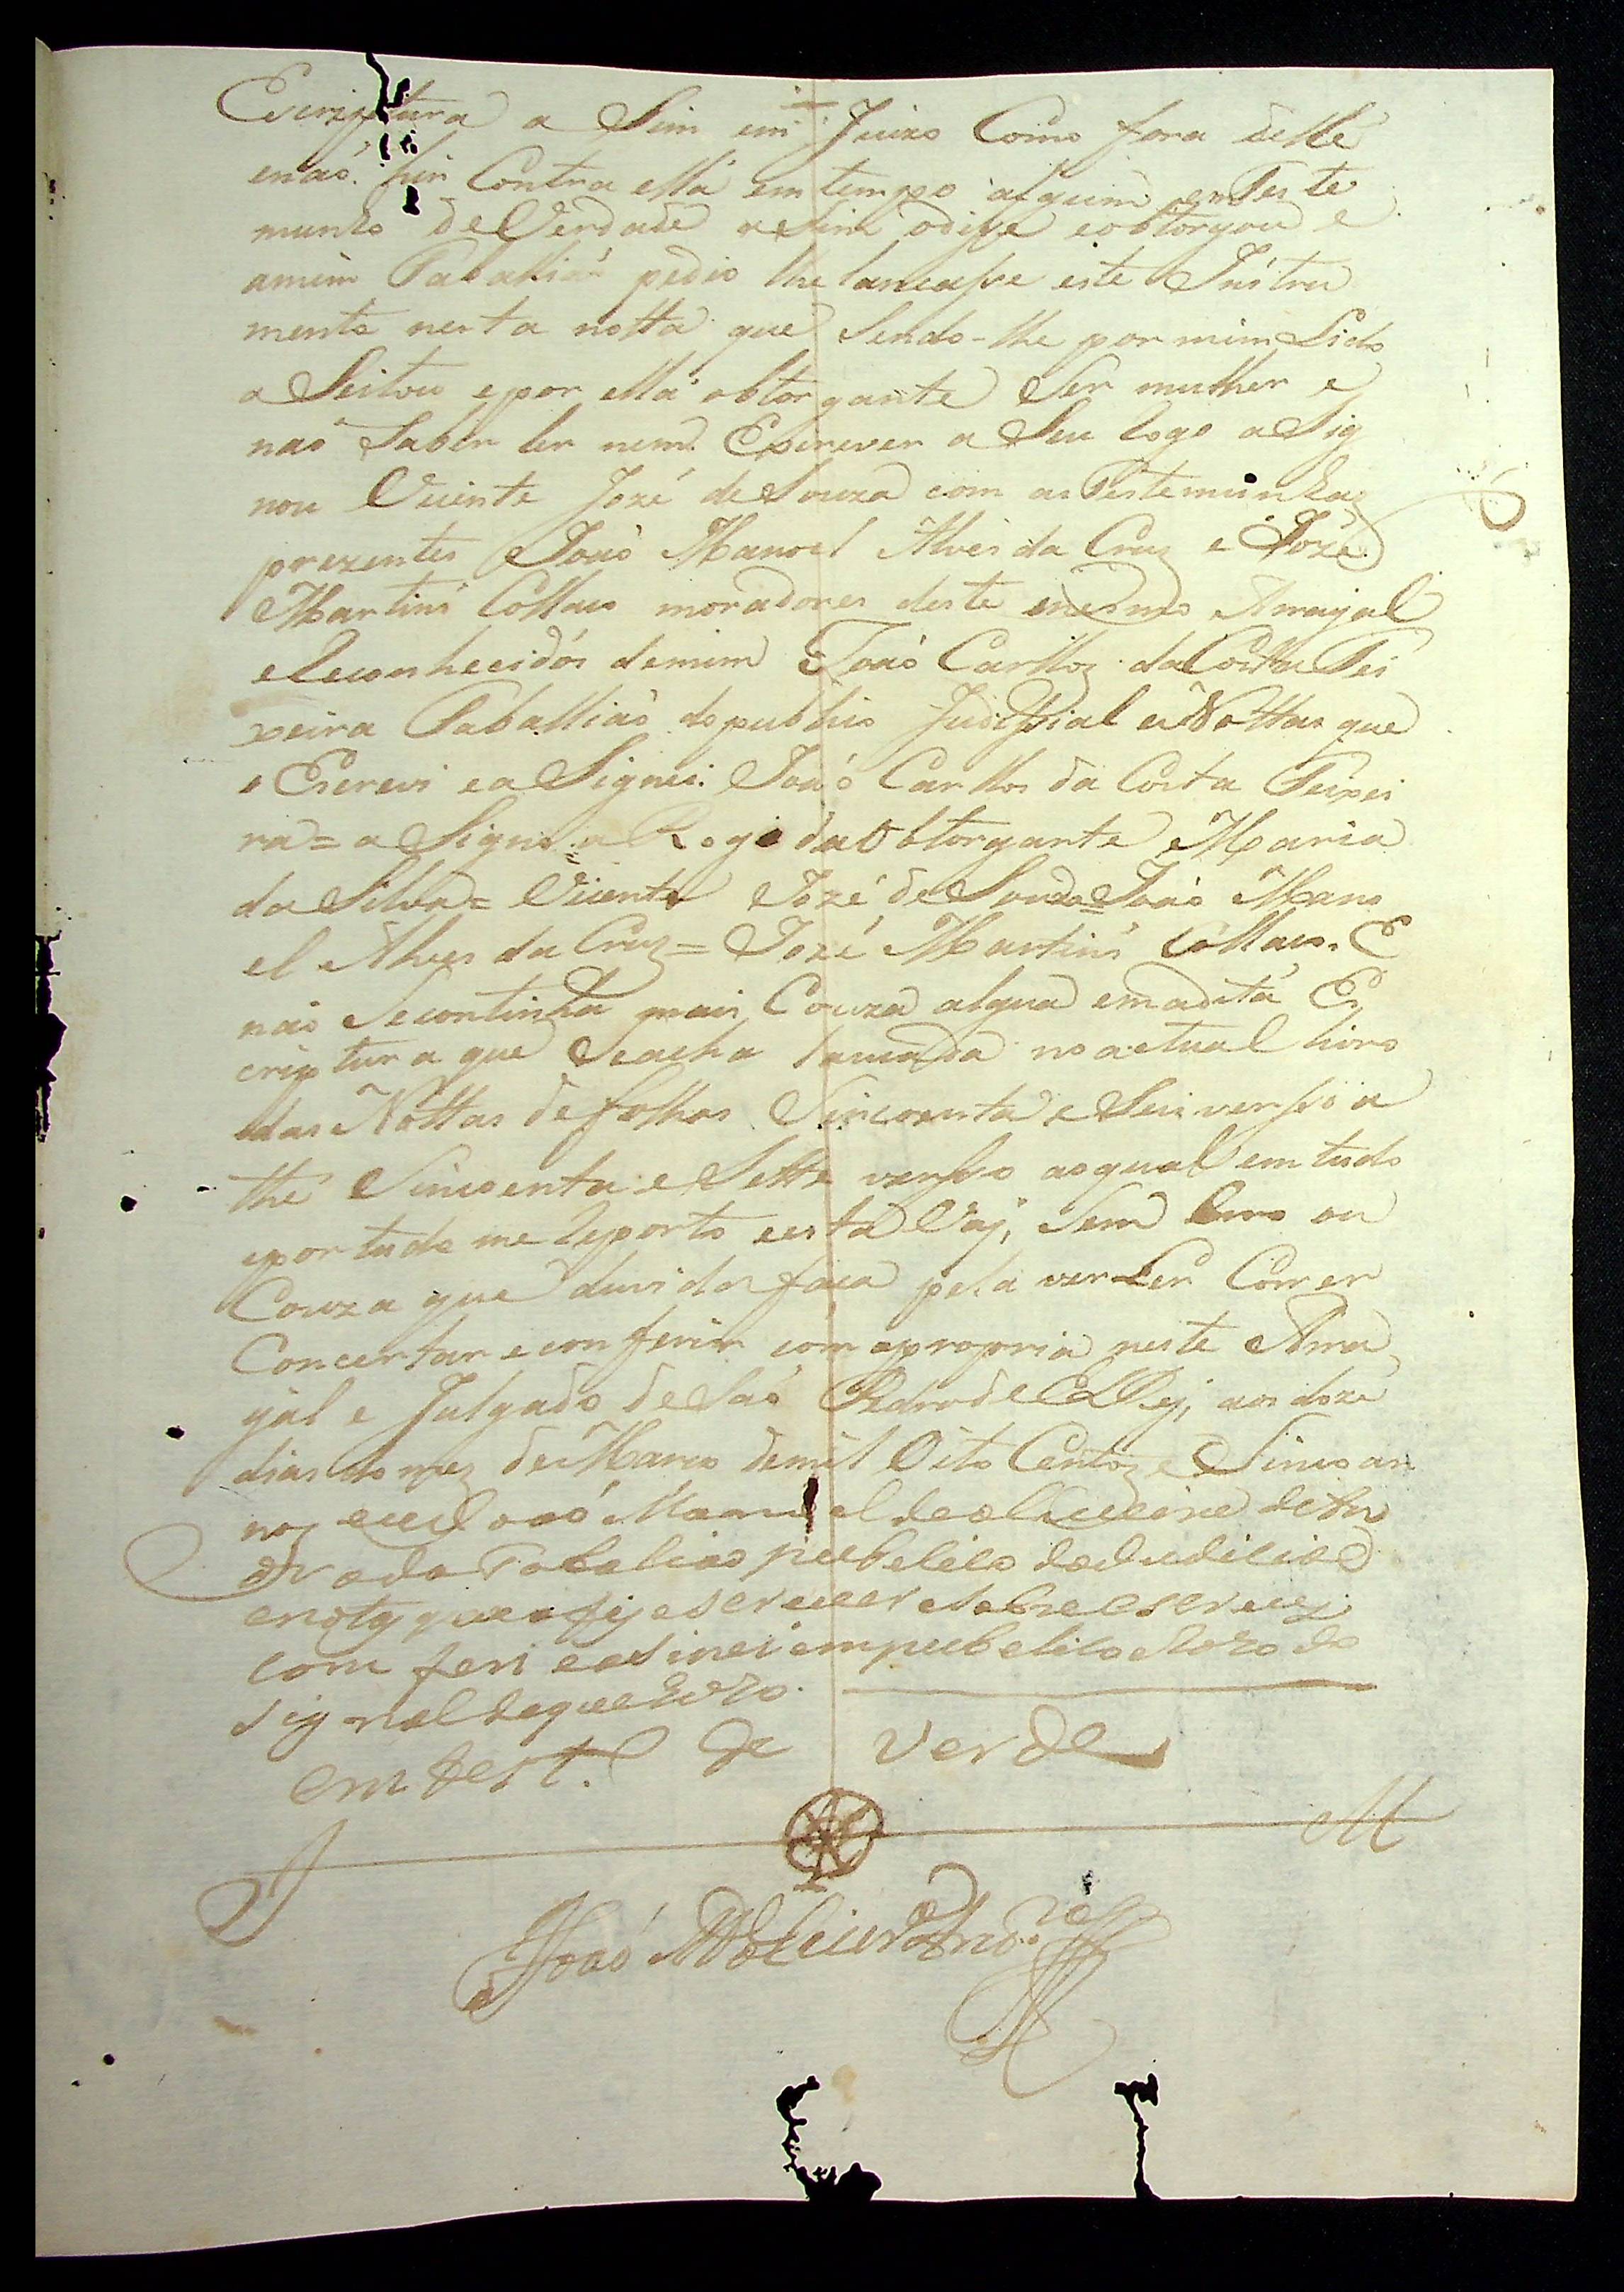 Escriptura a Sim em Juizo Como fora delle
enaó hir Contra ella em tempo algum em Teste
munho de Verdade asim odise eobtorgou e
amim Taballiaó pedio lhe lancasse este Instru
mento nesta notta que Sendo-lhe por mim Lido
a Seitou epor ella obtorgante Ser mulher e
naó Saber ler nem Escrever a Seu Rogo aSig
nou Vicente Jozé de Souza com as Testemunhaz
prezentes Joaó Manoel Alves da Cruz e Joze
Martins Collaco moradores deste mesmo Arrayal
e Reconhecidos demim Joaó Carlloz da Costa Tei
xeira Taballiaó do publico Judissial e Nottas que
o Escrevi e a Signei. Joaó Carllos da Costa Teixei
ra = a Signo a Rogo da Obtorgante Maria
da Silva = Vicente Jozé de Souza = Joaó Mano
el Alves da Cruz = Jozé Martins Collaco. E
naó Secontinha mais Couza algua emadita Es
criptura que Seacha lancada no actual livro
das Nottas de folhas Sincoenta e Seis verso a
thé Sincoenta e Sette verso aoqual em tudo
epor tudo me Reporto eesta Vaj, Sem ou
Couza que duvida faca pela ver Ler Correr
Concertar e conferir com apropria neste Arra
yal e Julgado de Saó Pedro de El Rej, aos doze
dias do mez de Marco demil Oito Centoz e Sinco an
noz eu Joaó Manoel de Oliveira de An
drada Tabaliaó pubelico do Judicial
enotz que o fiz escrever e sobre escrevy
com feri e asinei em pubelico e Razo do
signal de que Uzo.
em test.º de verde
J M
Joaó M de Oliur.ª And.